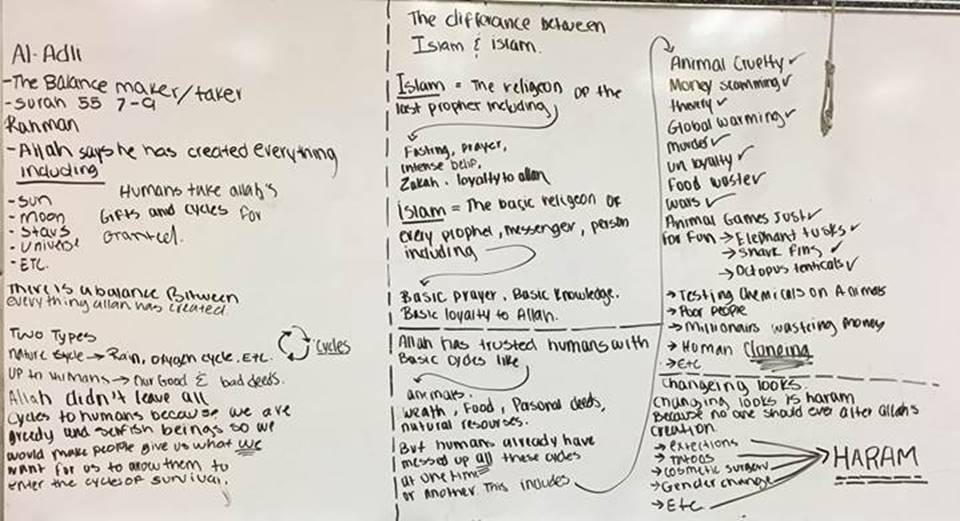 Al-Adli
-The Balance maker/taker
-surah 55 7-9
Rahman
-Allah says he has created everything
including
-sun
-moon
-stars
-universe
-ETC.
Humans take allah's
Gifts and cycles for
Granted.
There is a balance Bitween
everything allah has created.
Two Types
nature cycle → Rain, oxygen cycle, ETC.
cycles
up to Humans → Our Good & bad deeds.
Allah didn't leave all
cycles to humans because we are
greedy and selfish beings so we
would make people give us what we
want for us to allow them to
enter the cycles of survival.
The differance between
Islam & islam.
Islam = The religeon of the
last prophet including
Fasting, prayer,
intense belif,
Zakah. loyalty to allah
islam = The basic religeon of
every prophet, messenger, person
including
Basic prayer, Basic knowledge.
Basic loyalty to Allah.
Allah has trusted humans with
Basic cycles like
animals.
wealth, Food, Pasonal deeds,
natural resourses.
But humans already have
messed up all these cycles
at one time
or another. This includes
Animal Cruelty ✓
Money scamming ✓
✓
Global warming ✓
murder ✓
un loyalty ✓
Food waster ✓
wars ✓
Animal Games Just ✓
for fun → Elephant tusks ✓
→ shark fins ✓
→ Octopus tenticals ✓
→ Testing chemicals on Animals
→ Poor people
→ Millionairs wastring money
→ Human Cloneing
→ Etc
Changeing looks.
changing looks is haram
Because no one should ever alter allah's
creation.
→ extetions
→ Tatoos
→ cosmetic surgery
→ Gender change
→ Etc
HARAM